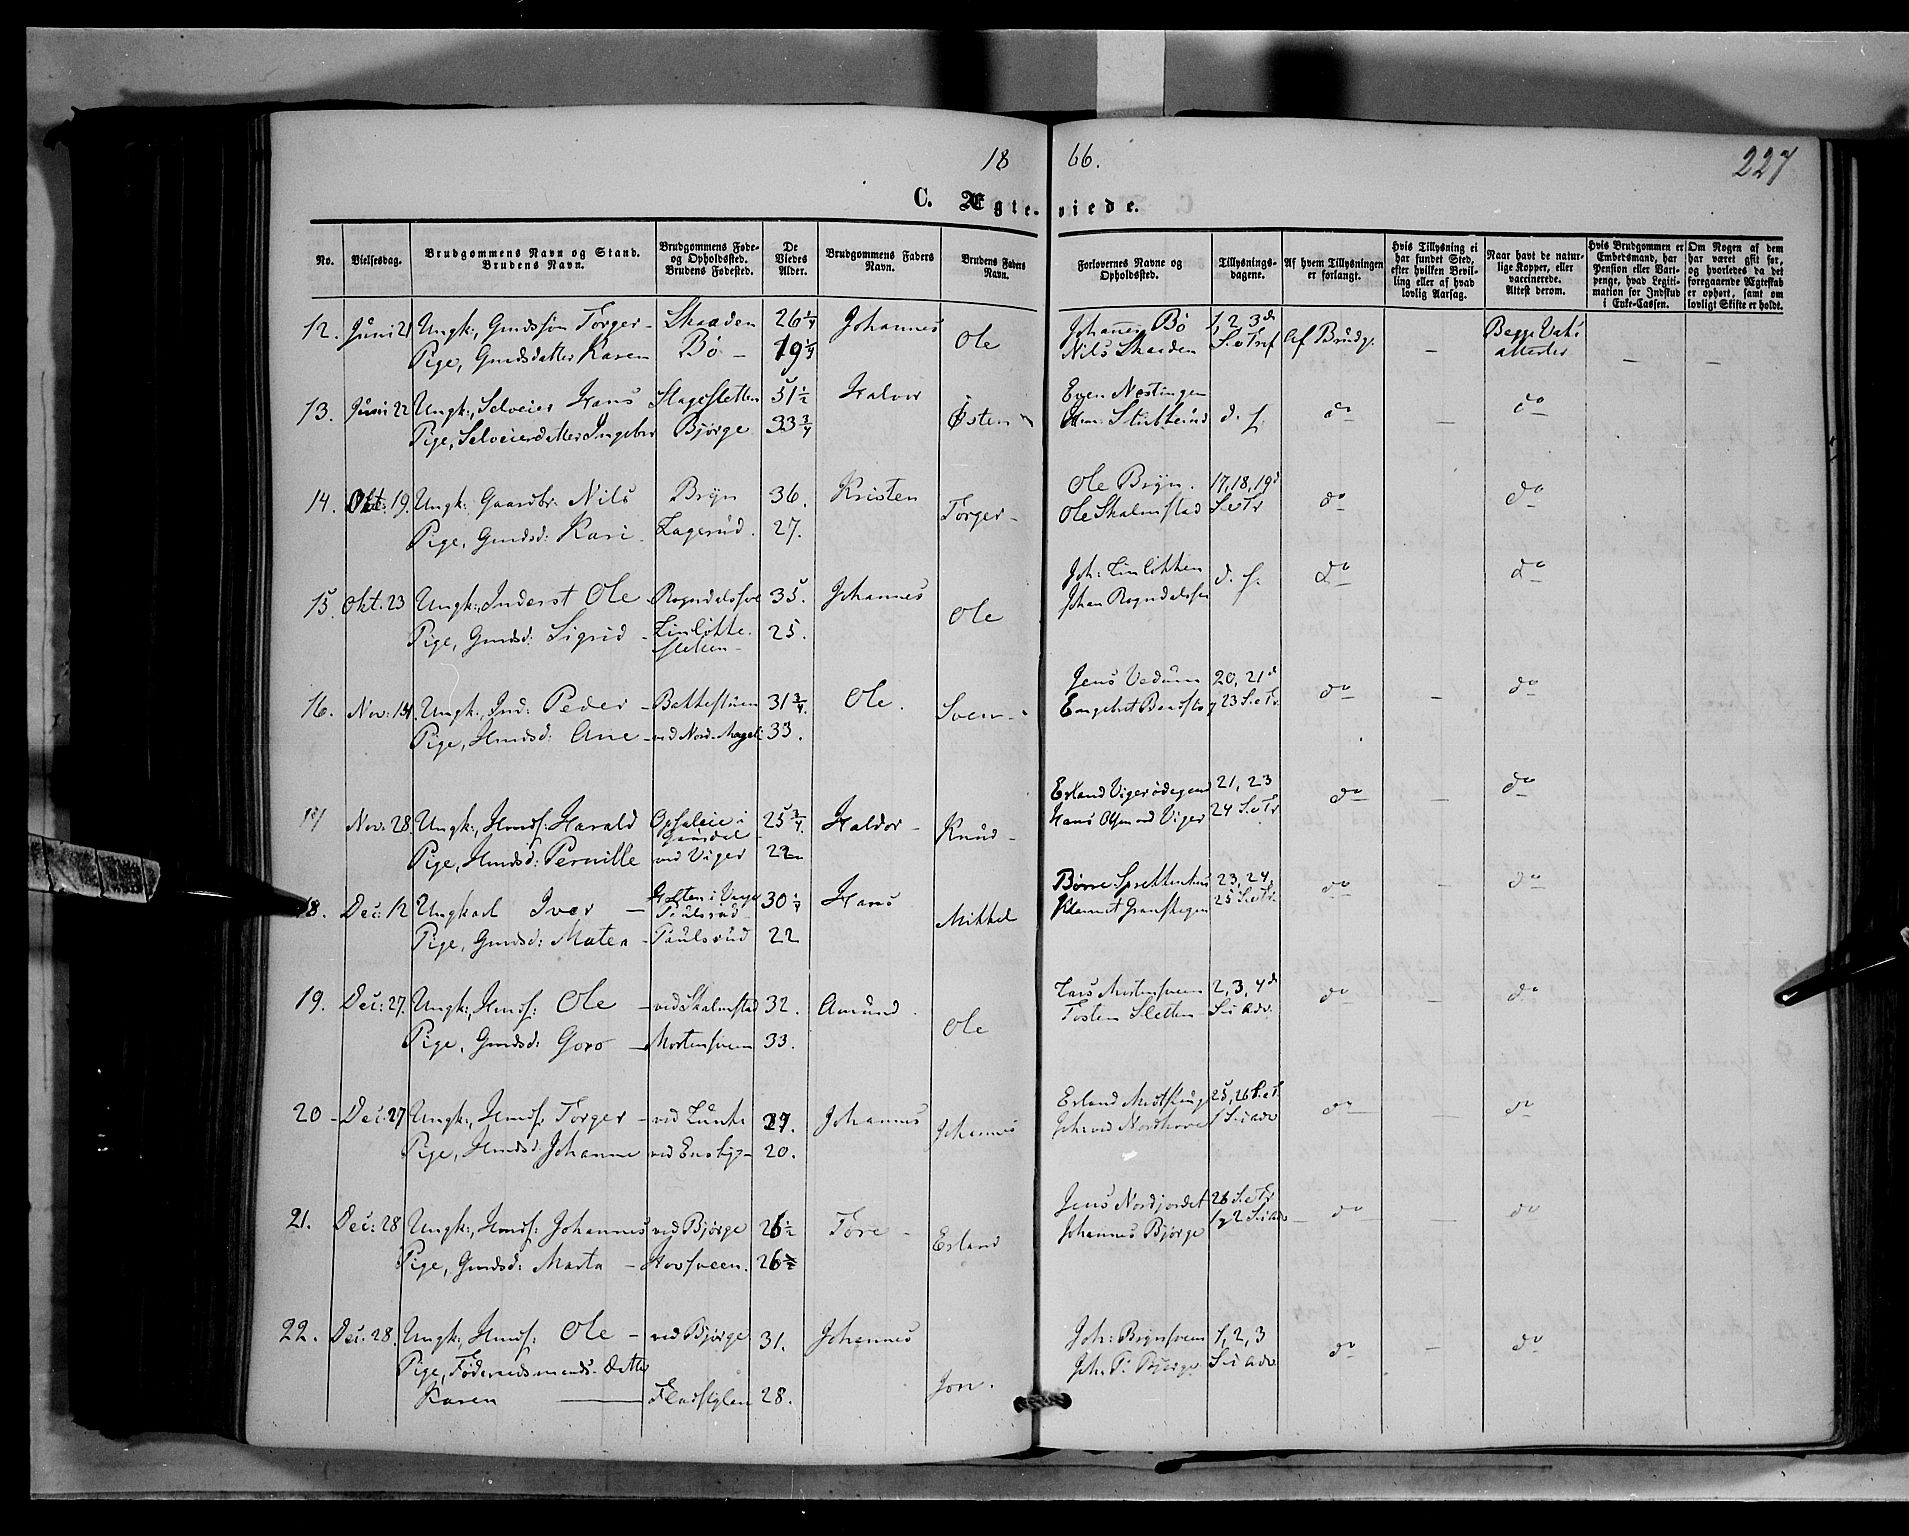 18 66.
227
C. Ægte- viede.
No.
Vielsesdag.
Brudgommens Navn og Stand.
Brudens Navn.
Brudgommens Føde-
og Opholdssted.
Brudens Fødested.
De
Viedes
Alder.
Brudgommens Faders
Navn.
Brudens Faders
Navn.
Forlovernes Navne og
Opholdssted.
Tillysnings-
dagene.
Af hvem Tillysningen
er forlangt.
Hvis Tillysning ei
har fundet Sted,
efter hvilken Bevil-
ling eller af hvad
lovlig Aarsag.
Naar havt de natur-
lige Kopper, eller
vaccinerede.
Attest derom.
Hvis Brudgommen er
Embedsmand, har
Pension eller Vart-
penge, hvad Legiti-
mation for Indskud
i Enke-Cassen.
Om Nogen af dem
har været gift før,
og hvorledes da det
foregaaende Ægteskab
er ophørt, samt om
lovligt Skifte er holdt.
12. Juni 21 Ungk:, Gmdssøn Torger - Skaaden 26 1/4 Johannes Johannes Bø 1, 2, 3d Af Brudg. Begge Vaks
Pige, Gmdsdatter Karen Bø - 19 1/4 Ole Nils Skaaden S.e Tref - attester - -
13. Juni 22 Ungk:, Selveier Hans 51 1/2 Halvor Even Nestingen
Pige, Selveierdatter Ingebor Bjørge 33 3/4 Østen d. f. do - do
14. Okt: 19. Ungk: Gaardbr: Nils Bryn 36. Kristen Ole Bryn. 17, 18, 19d
Pige, Gmdsd: Kari Lagerud. 27. Torger - Ole Skalmstad S.e Tr do do
15. Okt: 23 Ungk: Inderst Ole 35. Johannes Joh: Linløkken d. f. do do
Pige, Gmdsd: Sigrid - Linløkke- 25. Ole
sletten -
16. Nov: 14. Ungk:, Ind: Peder - Bakkestuen 31 3/4. Ole. Jens Vedum 20, 21d do - do
Pige, Hmdsd: Ane - ved Nord- 33. Sven - Engebret 23 S.e Tr.
17 Nov: 28. Ungk:, Hmdsf: Harald Opsaleie i 25 3/4. Haldor - Erland Vigerødegaard 21, 23 do - do
Pige, Hmdsd: Pernille ved Viger 22 Knud - Hans Olsen ved Viger 24 S.e Tr
18. Dec: 12 Ungkarl Iver - 30 1/4 Hans Børre 23, 24, do - do
Paulsrud Klemet Granskogen 25 S.e Tr.
Pige, Gmdsd: Matea - Paulsrud 22 Mikkel
19. Dec: 27. Ungk:, Hmdsf: Ole - ved Skalmstad 32. Amund. Lars Mortensveen 2, 3, 4d do - do
Pige, Gmdsd: Goro - Mortensveen 33. Ole Tosten Sletten S. i Adv.
20 - Dec: 27 Ungk:, Hmdsf: Torger - ved Lunke 27. Johannes Erland 25, 26 S.e T. do - do
Pige, Hmdsd: Johanne ved Ensby - 20. Johannes Joh: ved Nordhove 1 S. i Adv
21. Dec: 28 Ungk:, Hmdsf: Johannes ved Bjørge 26 1/2 Tore - Jens Nordjordet 26 S.e Tr - do - do
Pige, Gmdsd: Marta - Hovsveen. 26 1/2 Erland Johannes Bjørge 1 g 2 S. i Adv
22. Dec: 28. Ungk:, Hmdsf: Ole - ved Bjørge 31. Johannes Joh: Brynsveen 1, 2, 3 do - do
Pige, Føderaadsmands-Datter Joh: P: Bjørge S. i Adv
Karen - 28. Jon.